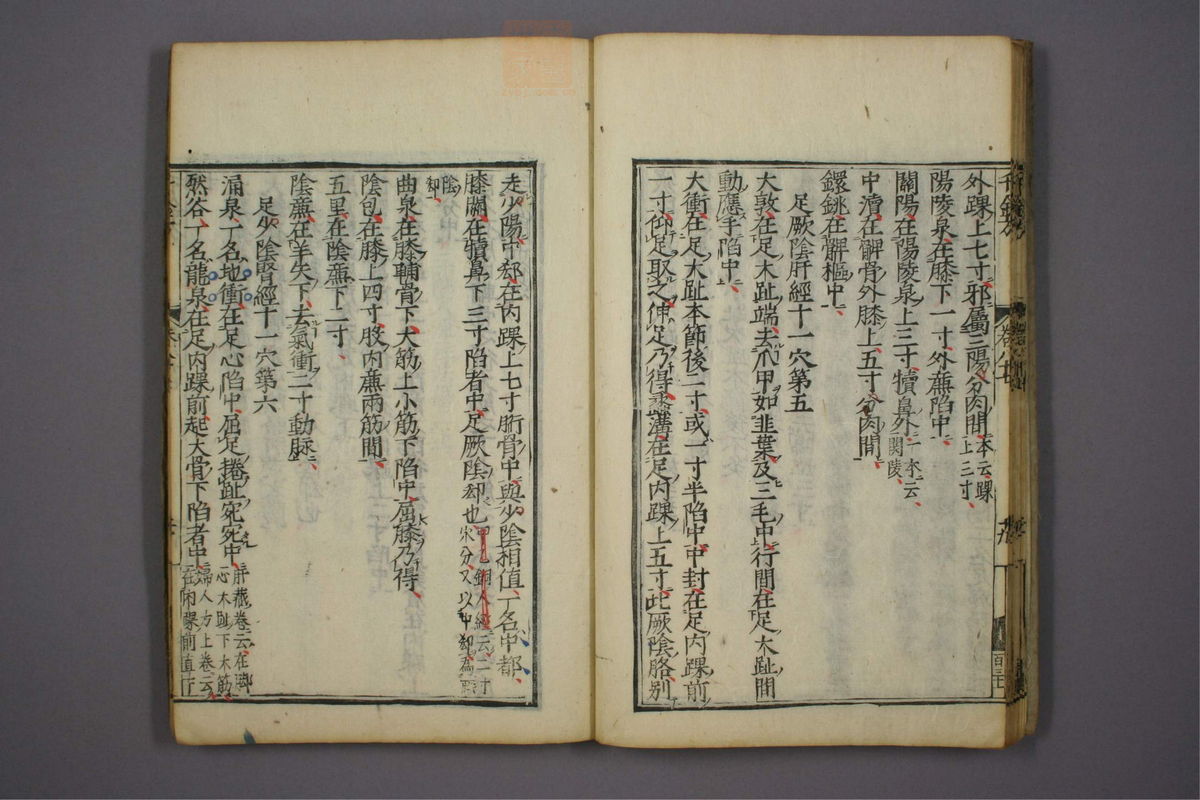 外踝上七寸邪屬三陽分肉間一本云踝上三寸
陽陵泉在膝下一寸外廉陷中
關陽在陽陵泉上三寸犢鼻外一本云關陵
中瀆在髀骨外膝上五寸分肉間
鐶銚在髀樞中
足厥陰肝經十一穴第五
大敦在足大趾端去爪甲如韭葉及三毛中行間在足大趾間
動應手陷中
大衝在足大趾本節後二寸或一寸半陷中中封在足內踝前
一寸仰足取之伸足乃得蠡溝在足內踝上五寸此厥陰胳別
走少陽中郄在內踝上七寸䯒骨中與少陰相值一名中都
膝關在犢鼻下三寸陷者中足厥陰郄也甲乙銅人經云二寸
陰郄
曲泉在膝輔骨下大筋上小筋下陷中屈膝乃得
陰包在膝上四寸股內廉兩筋間
五里在陰廉下二寸
陰廉在羊矢下去氣衝二寸動脉中
足少陰腎經十一穴第六
涌泉一名地衝在足心陷中屈足捲趾宛宛中肝藏卷云在脚心大趾下大筋
然谷一名龍泉在足內踝前起大骨下陷者中婦人方上卷云在內踝前直下